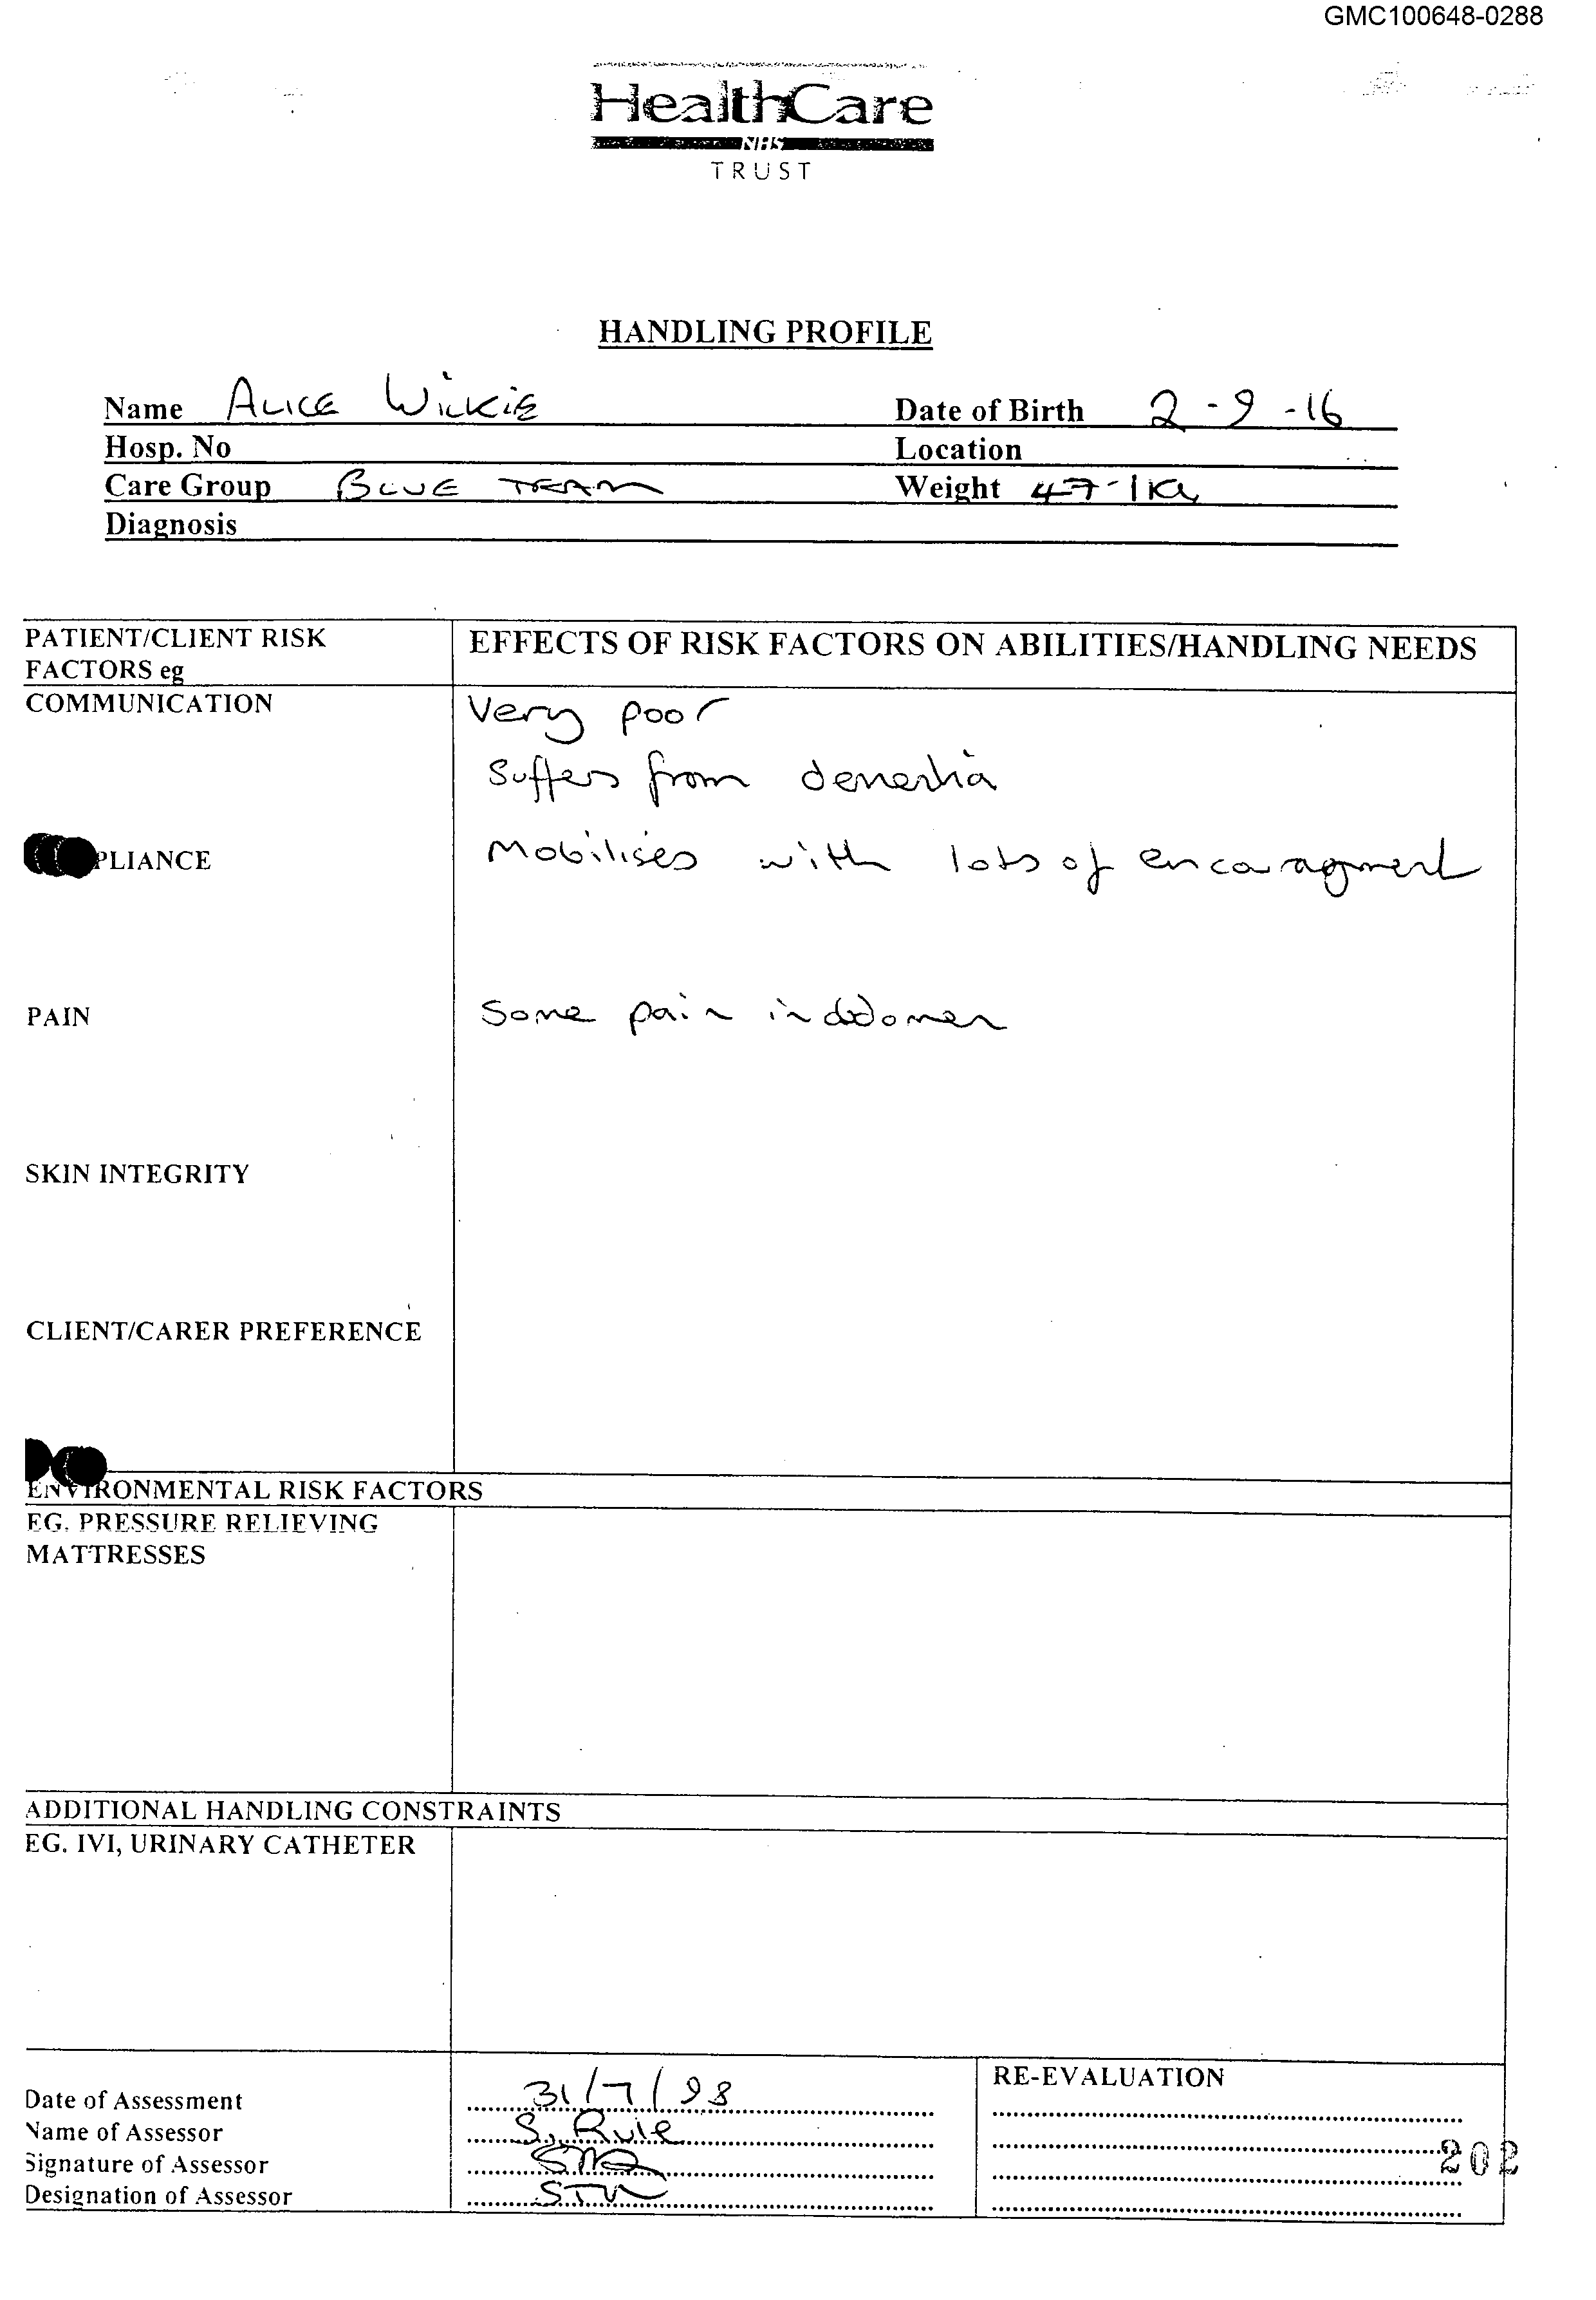 GMC100648-0288
HealthCare
NHS
TRUST
HANDLING PROFILE
Name ALICE WILKIE Date of Birth 2-9-16
Hosp. No Location
Care Group BLUE TEAM Weight 47.1KG
Diagnosis
PATIENT/CLIENT RISK
FACTORS eg
EFFECTS OF RISK FACTORS ON ABILITIES/HANDLING NEEDS
COMMUNICATION Very poor
Suffers from dementia
PLIANCE Mobilises with lots of encouragment
PAIN Some pain in
SKIN INTEGRITY
CLIENT/CARER PREFERENCE
ENVIRONMENTAL RISK FACTORS
EG. PRESSURE RELIEVING
MATTRESSES
ADDITIONAL HANDLING CONSTRAINTS
EG. IVI, URINARY CATHETER
RE-EVALUATION
Date of Assessment 31/7/98
Name of Assessor S. Rule
Signature of Assessor
Designation of Assessor
202